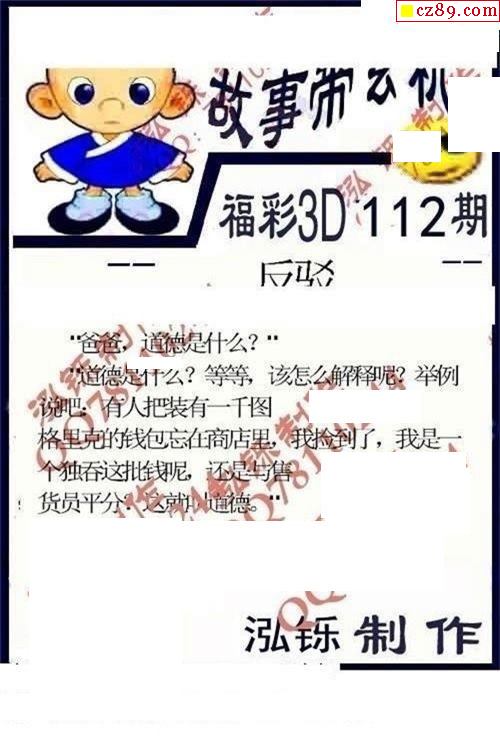 cz89.com
故事带玄机
福彩3D 112期
反驳
"爸爸，道德是什么？"
"道德是什么？等等，该怎么解释呢？举例
说吧：有人把装有一千图
格里克的钱包忘在商店里，我捡到了，我是一
个独吞这批钱呢，还是与售
货员平分？这就叫道德。"
泓铄制作